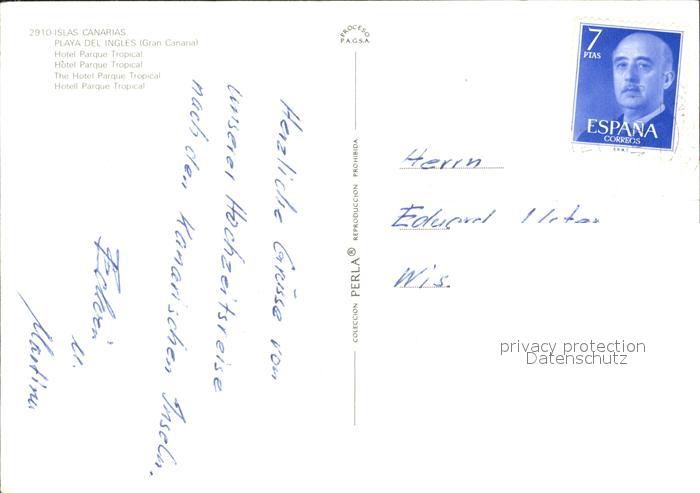 2910-ISLAS CANARIAS
PLAYA DEL INGLES (Gran Canaria)
Hotel Parque Tropical
Hôtel Parque Tropical
The Hotel Parque Tropical
Hotell Parque Tropical
PROCESO
P.A.G.S.A.
7
PTAS
ESPAÑA
CORREOS
Herzliche Grüsse von
unserer Hochzeitsreise
nach den Kanarischen Inseln.
u.
Martina
COLECCION PERLA® REPRODUCCION PROHIBIDA
Herrn
Eduard
Wis.
privacy protection
Datenschutz